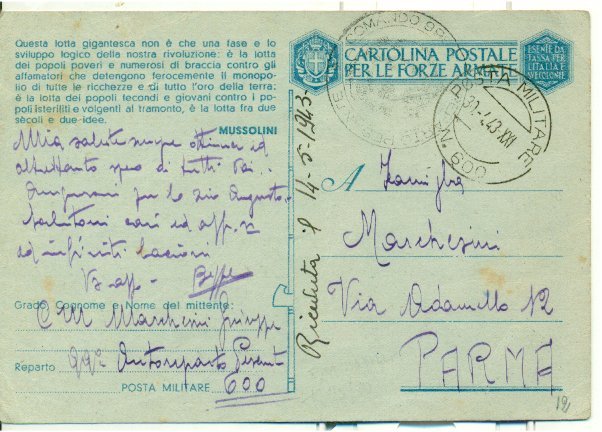 Questa lotta gigantesca non è che una fase e lo
sviluppo logico della nostra rivoluzione: è la lotta
dei popoli poveri e numerosi di braccia contro gli
affamatori che detengono ferocemente il monopo-
lio di tutte le ricchezze e di tutto l'oro della terra:
è la lotta dei popoli fecondi e giovani contro i po-
poli isteriliti e volgenti al tramonto, è la lotta fra due
sècoli e due idee.
MUSSOLINI
Mia salute sempre ottima ed
altrettanto spero di tutti voi.
per lo zio Augusto.
Salutoni cari ed aff.
ed infiniti bacioni
Vs aff. Beppe
Grado, Cognome e Nome del mittente:
C M Marchesini Giuseppe
Reparto 992 Autoreparto Pesante
POSTA MILITARE 600
CARTOLINA POSTALE
PER LE FORZE ARMATE
ESENTE DA
TASSA PER
L'ITALIA E
COMANDO
POSTA MILITARE
N. 600
43.XXI
Ricevuta il 14-5-1943-
A Famiglia
Marchesini
Via Adamello 12
PARMA